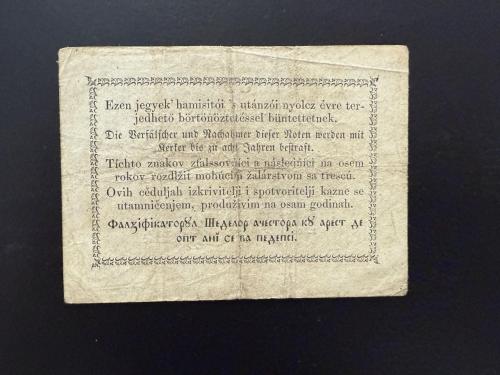 Ezen jegyek' hamisitói 's utánzói nyolcz évre ter-
jedhető börtönöztetéssel büntettetnek.
Die Verfälscher und Nachahmer dieser Noten werden mit
Kerker bis zu acht Jahren bestraft.
Tíchto znakov zfalssovňíci a následňíci na osem
rokov rozdlžit mohúcím žalárstvom sa trescú.
Ovih céduljah izkrivitelji i spotvoritelji kazne se
utamničenjem, produživim na osam godinah.
Фалзіфікаторȣл Шеделор ачестора кȣ арест де
опт ані се ва педепсі.